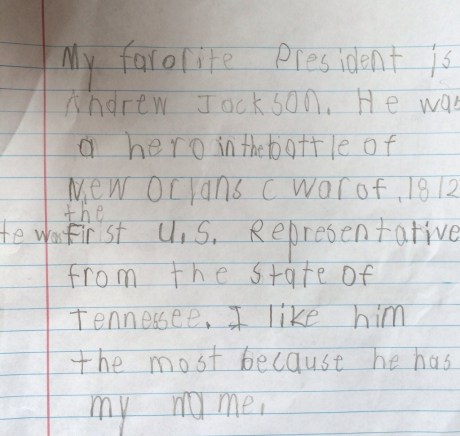 My favorite President is
Andrew Jackson. He was
a hero in the battle of
New Orlans ( war of 1812
the
He was First U.S. Representative
from the state of
Tennessee. I like him
the most because he has
my name.